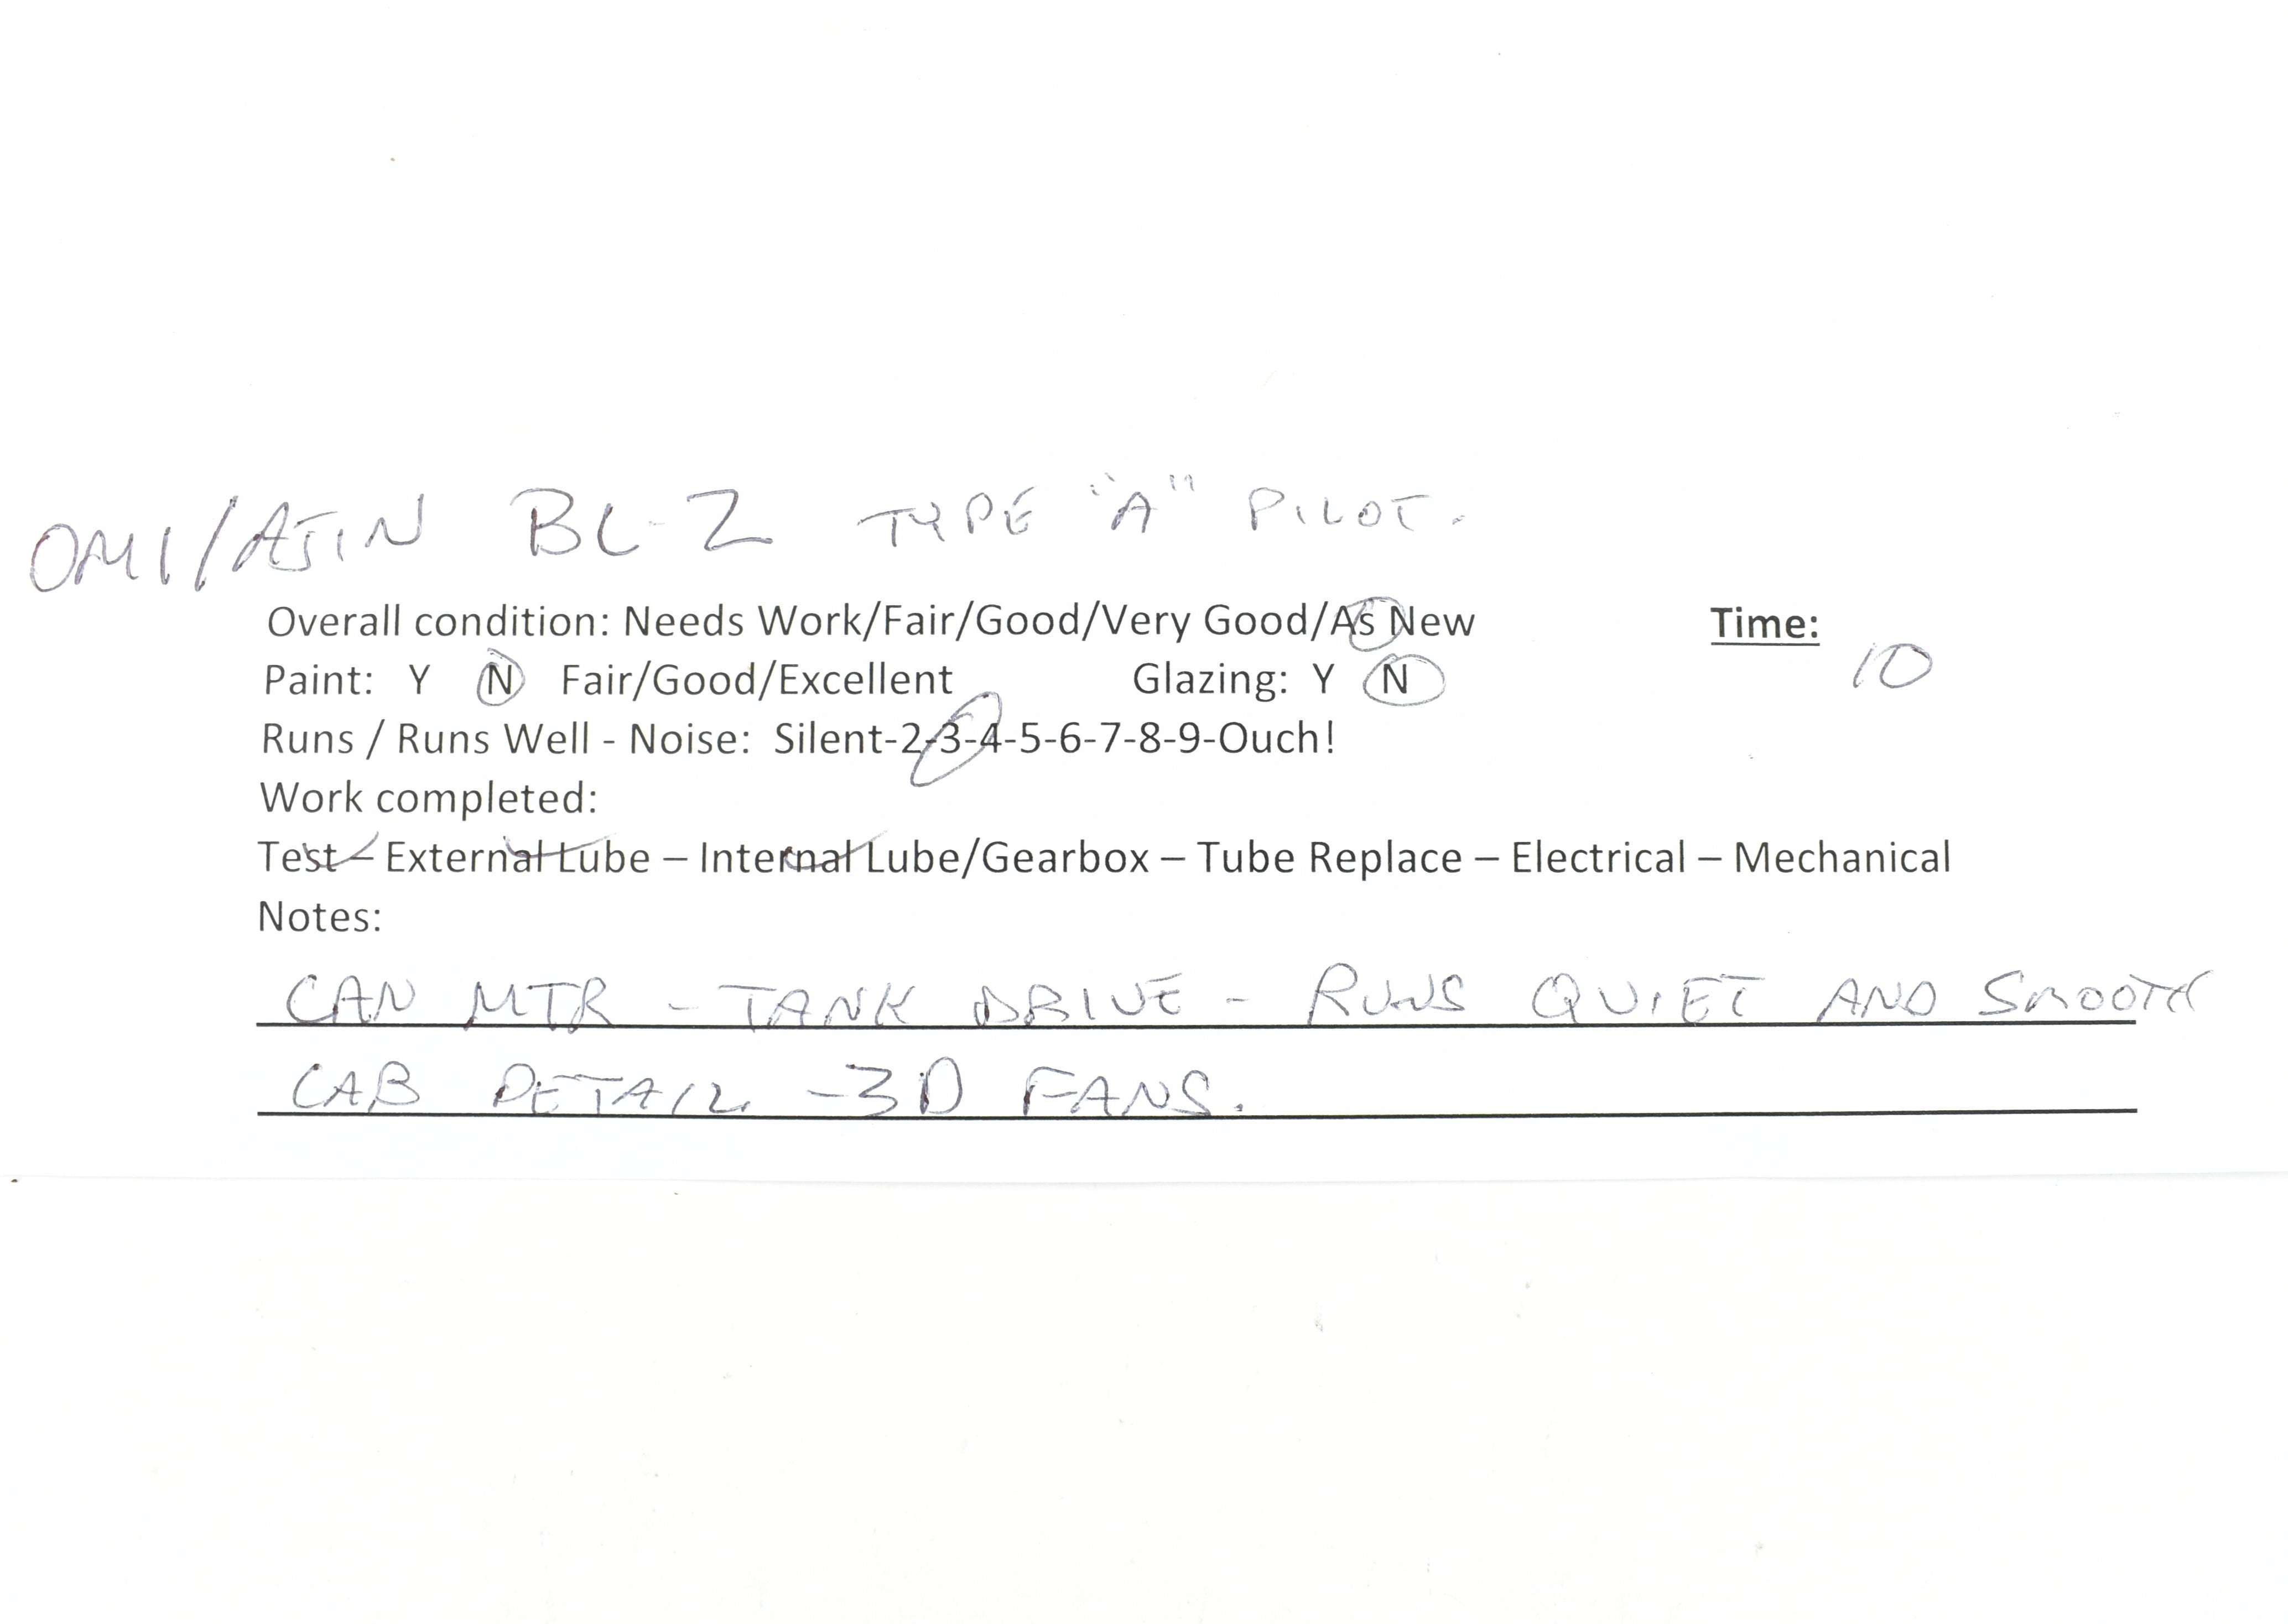 OMI/AJIN BL-2 TYPE "A" PILOT.
Overall condition: Needs Work/Fair/Good/Very Good/As New Time:
Paint: Y N Fair/Good/Excellent Glazing: Y N 10
Runs / Runs Well - Noise: Silent-2-3-4-5-6-7-8-9-Ouch!
Work completed:
Test – External Lube – Internal Lube/Gearbox – Tube Replace – Electrical – Mechanical
Notes:
CAN MTR - TANK DRIVE - RUNS QUIET AND SMOOTH
CAB DETAIL - 3D FANS.